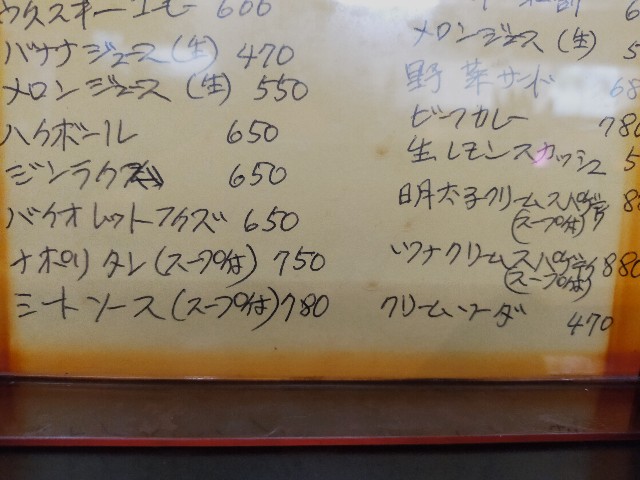 ウイスキーコーヒー 600
バナナジュース(生) 470
メロンジュース(生) 550
ハイボール 650
ジンライム 650
バイオレットフィズ 650
ナポリタン(スープ付) 750
ミートソース(スープ付)780
メロンジュース(生) 5
野菜サンド 68
ビーフカレー 780
生レモンスカッシュ 5
明太子クリームスパゲティ 88
(スープ付)
ツナクリームスパゲティ 880
(スープ付)
クリームソーダ 470